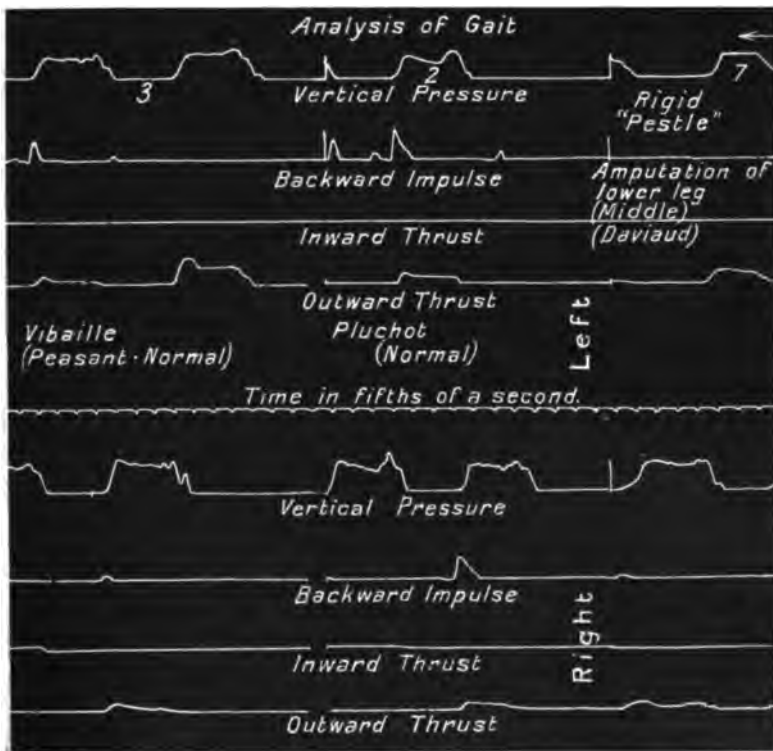 Analysis of Gait
3
2
7
Vertical Pressure
Rigid
"Pestle"
Backward Impulse
Amputation of
lower leg
(Middle)
(Daviaud)
Inward Thrust
Outward Thrust
Left
Vibaille
(Peasant · Normal)
Pluchot
(Normal)
Time in fifths of a second.
Vertical Pressure
Backward Impulse
Right
Inward Thrust
Outward Thrust